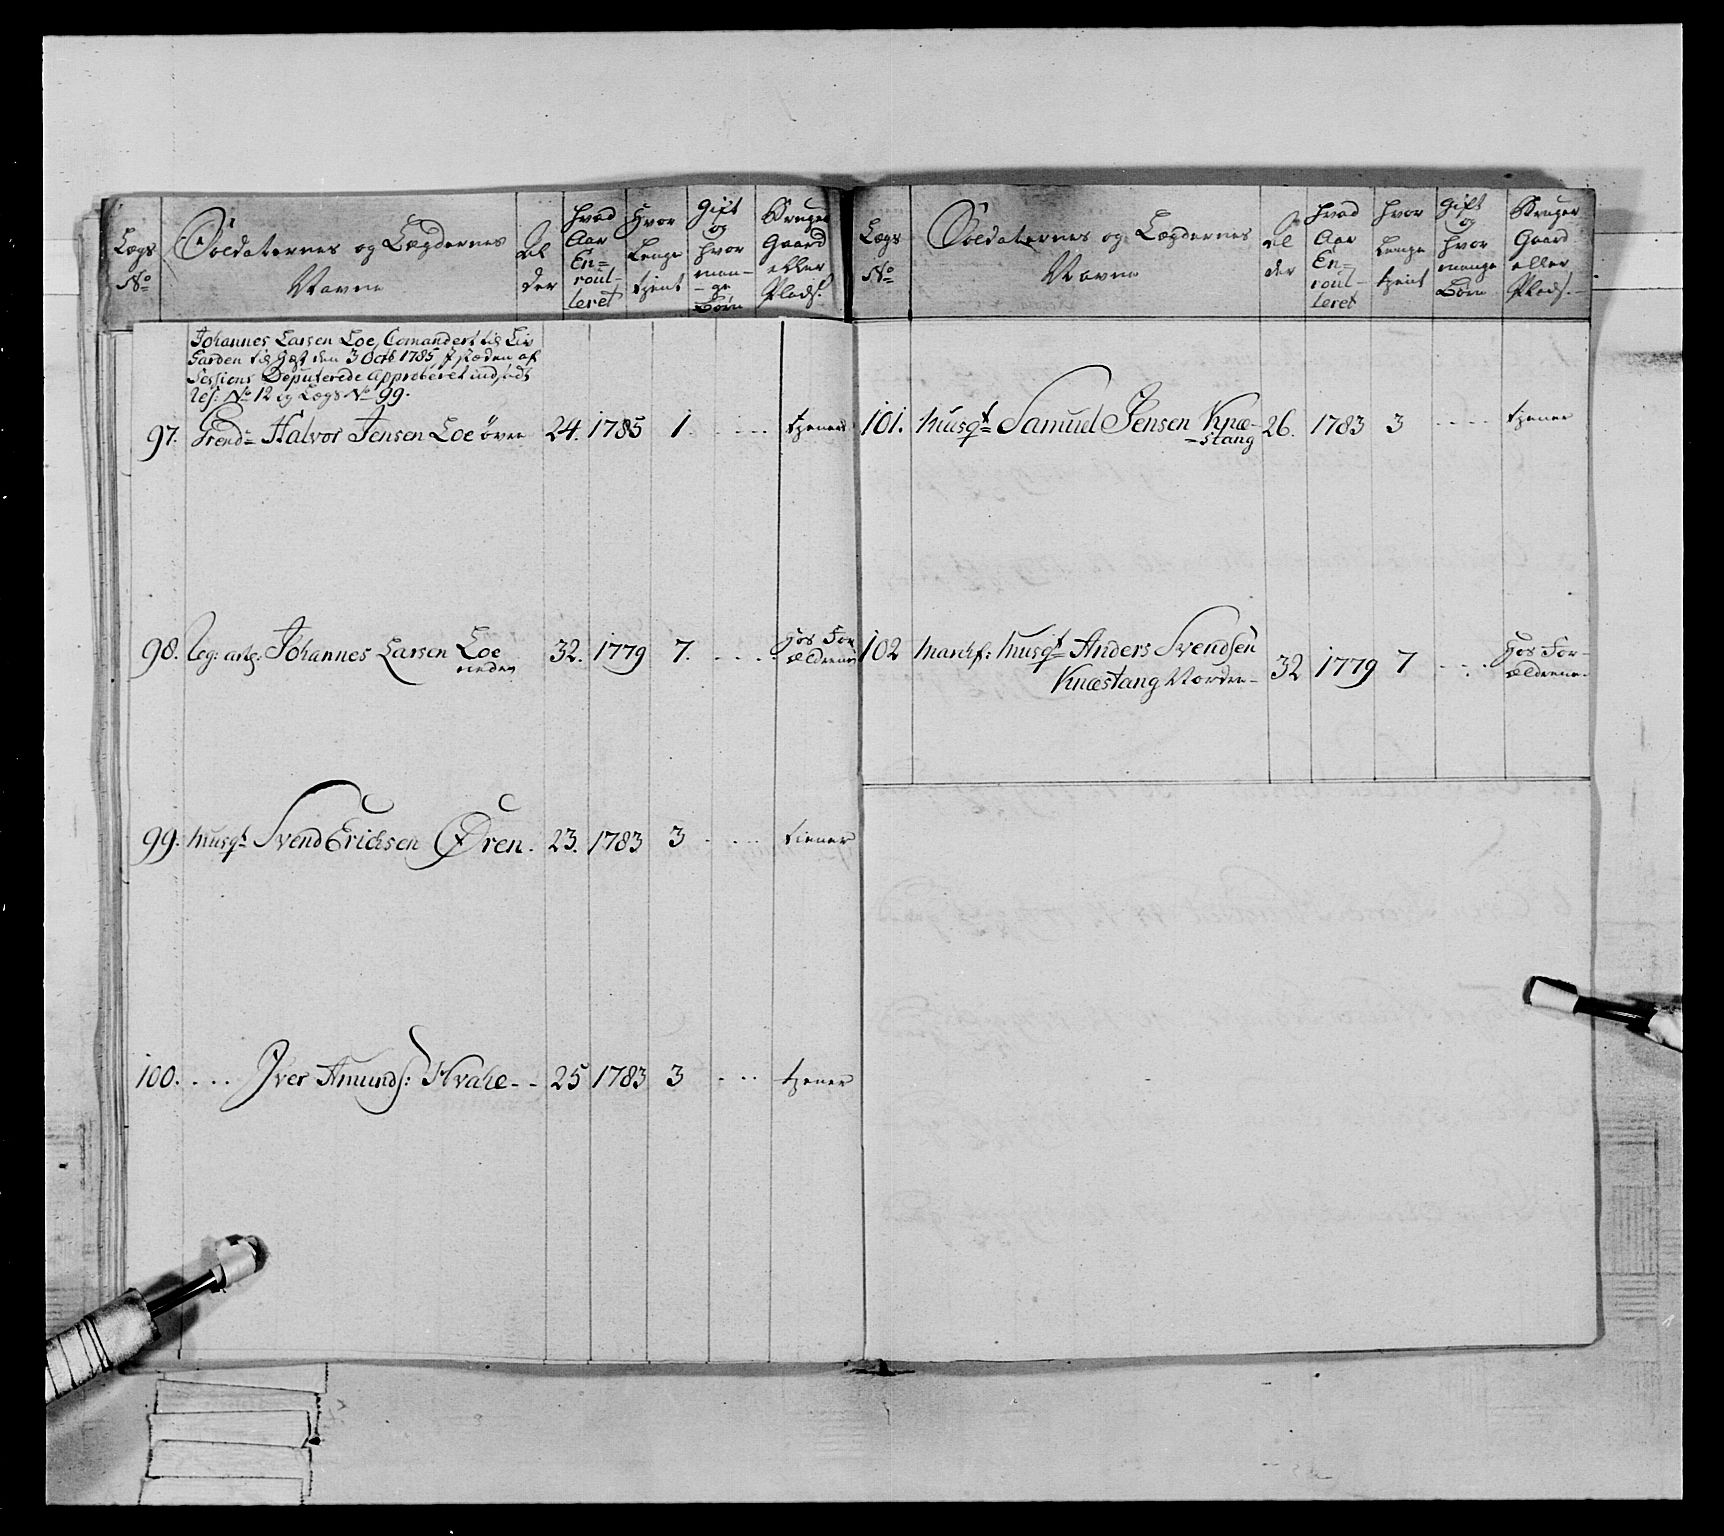 Lægs No
Soldaternes og Lægdernes Navne
Al der
Hvad Aar En= roul- leret
Hvor Lenge tjent
Gift og hvor man- ge Børn
Bruger Gaard eller Plads.
Johannes Larsen Loe, Comandert til Liv
Garden til Hest den 3 Octb 1785, I steden af
Sessions Deputerede Approberet indsadt
Res: No 12 og Lægs No 99.
97. Grend: Halvor Jensen Loe øvre 24. 1785 1. - - - - tjener
98. Reg: artg: Johannes Larsen Loe 32. 1779 7. - - - - Hos For
neden ældrene
99. Musqt Svend Erichsen Øren. 23. 1783 3 - - - - tiener
100. - - - Iver Amunds: Hvale - - 25 1783 3 - - - tjener
Lægs No
Soldaternes og Lægdernes Navne
Al der
Hvad Aar En= roul- leret
Hvor Lenge tjent
Gift og hvor mange Børn
Bruger Gaard eller Plads.
101. Musqt Samuel Jensen Knæ- 26. 1783 3 - - - - tjener
-stang
102 Musqt Anders Svendsen
Knæstang Norden- 32 1779 7 - - - Hos For-
ældrene.